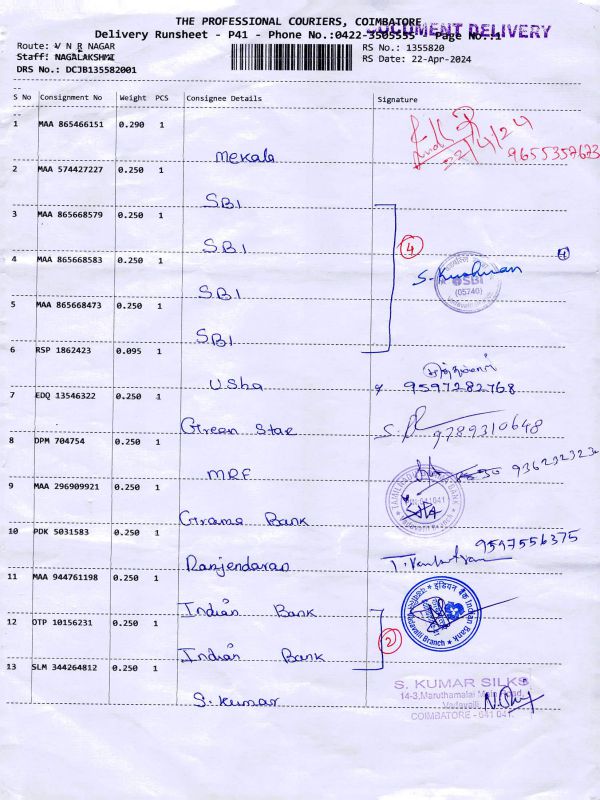 THE PROFESSIONAL COURIERS, COIMBATORE
DOCUMENT DELIVERY
Delivery Runsheet - P41 - Phone No.:0422-3505555 - Page No.:1
Route: V N R NAGAR
RS No.: 1355820
Staff: NAGALAKSHMI
RS Date: 22-Apr-2024
DRS No.: DCJB135582001
S No Consignment No Weight PCS Consignee Details Signature
1 MAA 865466151 0.290 1
22/4/24
9655357623
Mekala
2 MAA 574427227 0.250 1
SBI
3 MAA 865668579 0.250 1
SBI
4
4 MAA 865668583 0.250 1
S. Krishnan
4
SBI
(05740)
SBI
5 MAA 865668473 0.250 1
SBI
6 RSP 1862423 0.095 1
Usha
9597282768
7 EDQ 13546322 0.250 1
Green Star
9789310648
8 DPM 704754 0.250 1
MRF
936232323
9 MAA 296909921 0.250 1
641041
Grama Bank
10 PDK 5031583 0.250 1
9597556375
Ranjendaran
T. Venkatesan
11 MAA 944761198 0.250 1
Indian Bank
इंडियन बैंक Indian Bank
Vadavalli Branch
12 OTP 10156231 0.250 1
2
Indian Bank
13 SLM 344264812 0.250 1
S. KUMAR SILKS
14-3, Maruthamalai Main Road,
Vadavalli
COIMBATORE - 641 041.
S. Kumar